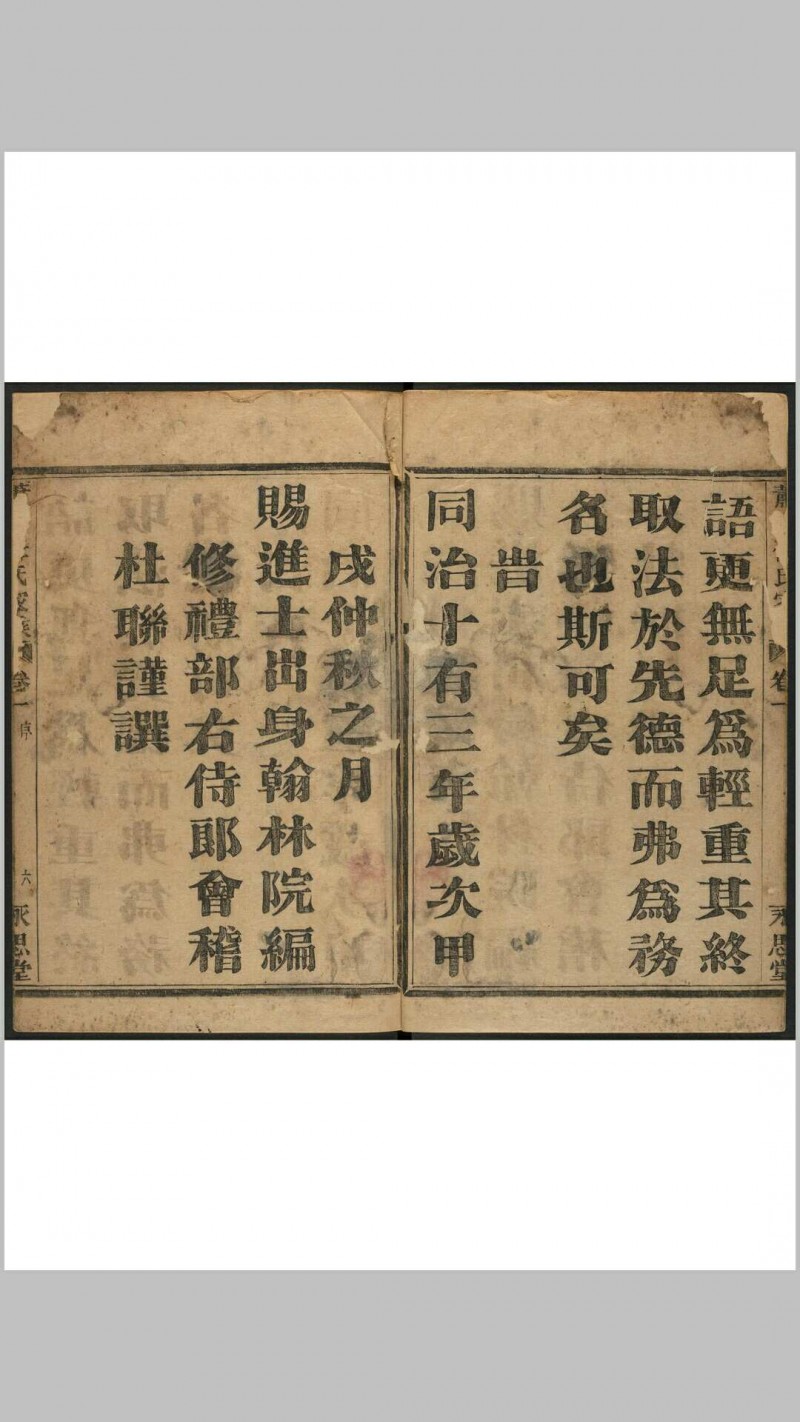 語更無足爲輕重其終
取法於先德而弗爲務
名也斯可矣
旹
同治十有三年歲次甲
戌仲秋之月
賜進士出身翰林院編
修禮部右侍郎會稽
杜聯謹譔
卷一
永思堂
氏家乘
卷一
序
六
永思堂